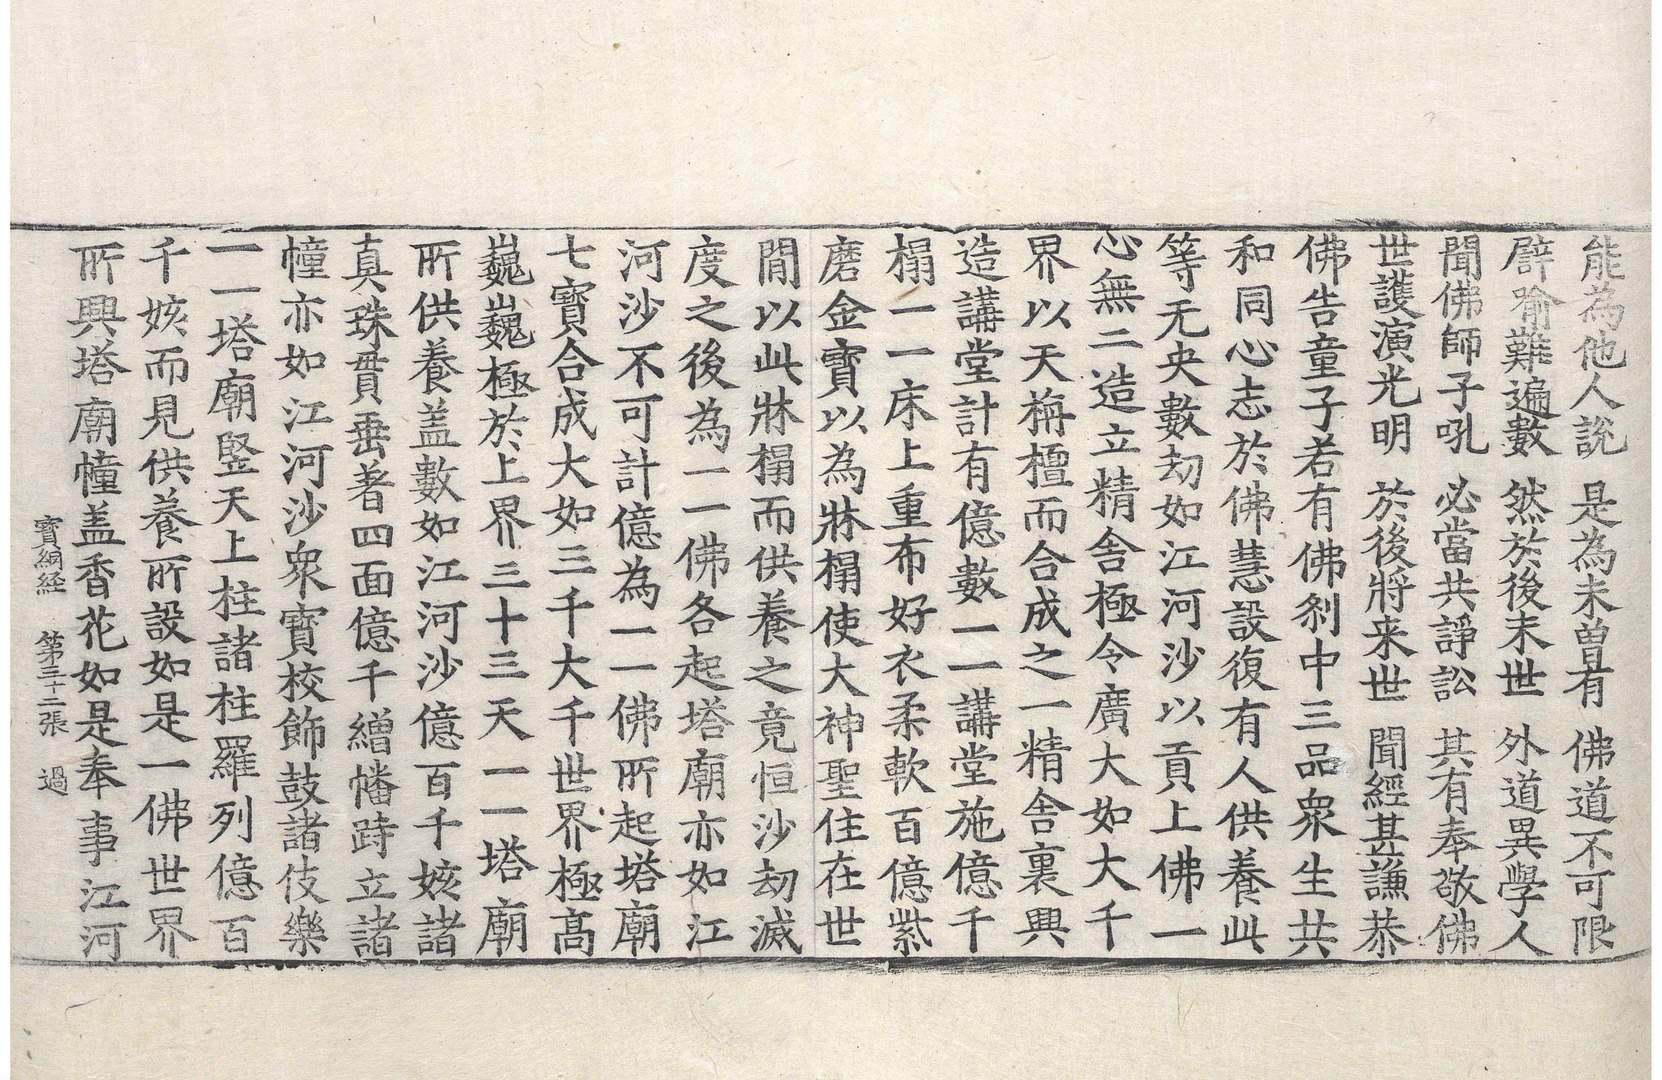 能為他人說　是為未曽有　佛道不可限
譬喻難遍數　然於後末世　外道異學人
聞佛師子吼　必當共諍訟　其有奉敬佛
世護演光明　於後將来世　聞經甚謙恭
佛告童子若有佛剎中三品衆生共
和同心志於佛慧設復有人供養此
等无央數劫如江河沙以貢上佛一
心無二造立精舎極令廣大如大千
界以天栴檀而合成之一精舎裏興
造講堂計有億數一一講堂施億千
榻一一床上重布好衣柔軟百億紫
磨金寳以為牀榻使大神聖住在世
閒以此牀榻而供養之竟恒沙劫滅
度之後為一一佛各起塔廟亦如江
河沙不可計億為一一佛所起塔廟
七寳合成大如三千大千世界極髙
巍巍極於上界三十三天一一塔廟
所供養盖數如江河沙億百千姟諸
真珠貫垂著四面億千繒幡跱立諸
幢亦如江河沙衆寳校飾鼓諸伎樂
一一塔廟竪天上柱諸柱羅列億百
千姟而見供養所設如是一佛世界
所興塔廟幢盖香花如是奉事江河
寳網経　第三十二張　過